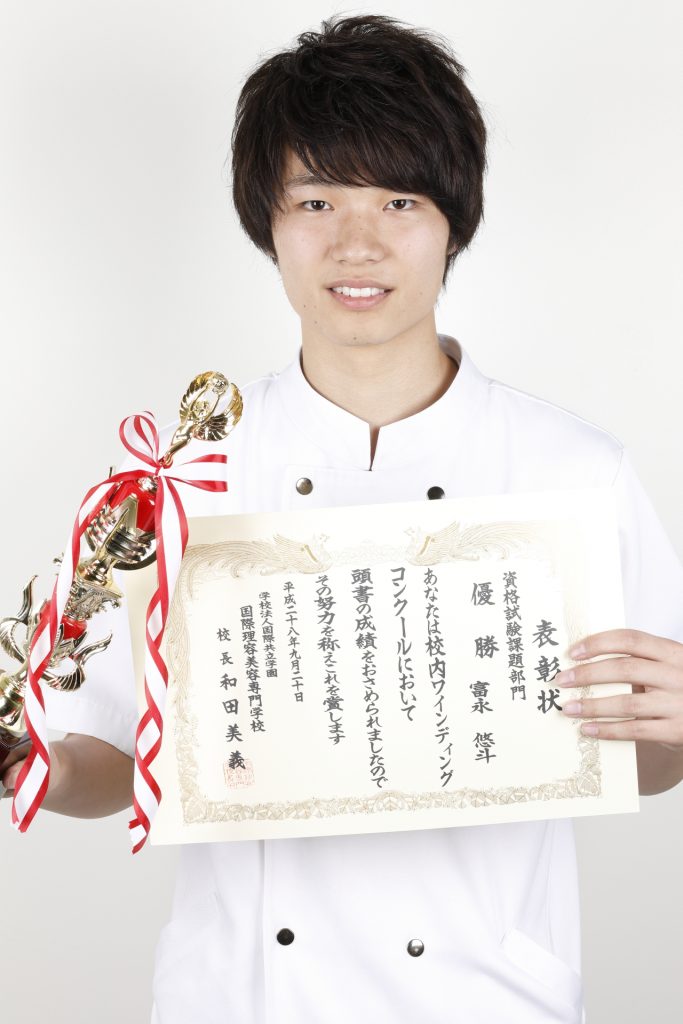 表彰状
資格試験課題部門
優勝 富永 悠斗
あなたは校内ワインディング
コンクールにおいて
頭書の成績をおさめられましたので
その努力を称えこれを賞します
平成二十八年九月二十日
学校法人国際共立学園
国際理容美容専門学校
校長 和田美義